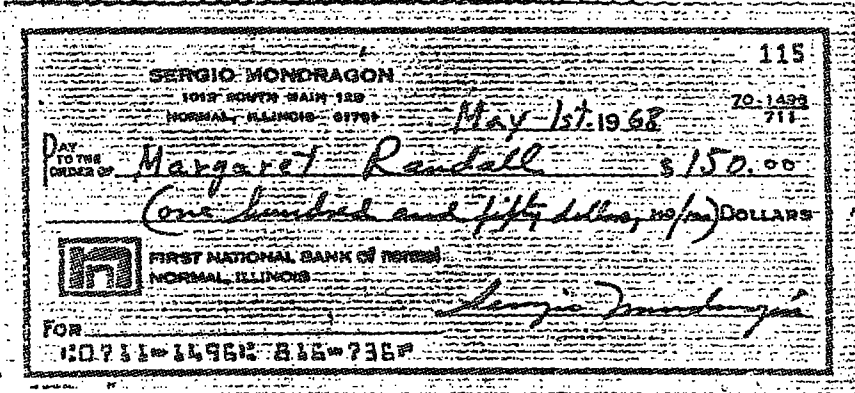 115
SERGIO MONDRAGON
1012 SOUTH MAIN 129
NORMAL, ILLINOIS 61761
May 1st. 19 68
70-1496
711
PAY TO THE ORDER OF Margaret Randall $ 150.00
(one hundred and fifty dollars, no/100) DOLLARS
FIRST NATIONAL BANK of normal
NORMAL, ILLINOIS
Sergio Mondragón
FOR
⑆0711⑉1496⑆ 816⑉736⑈